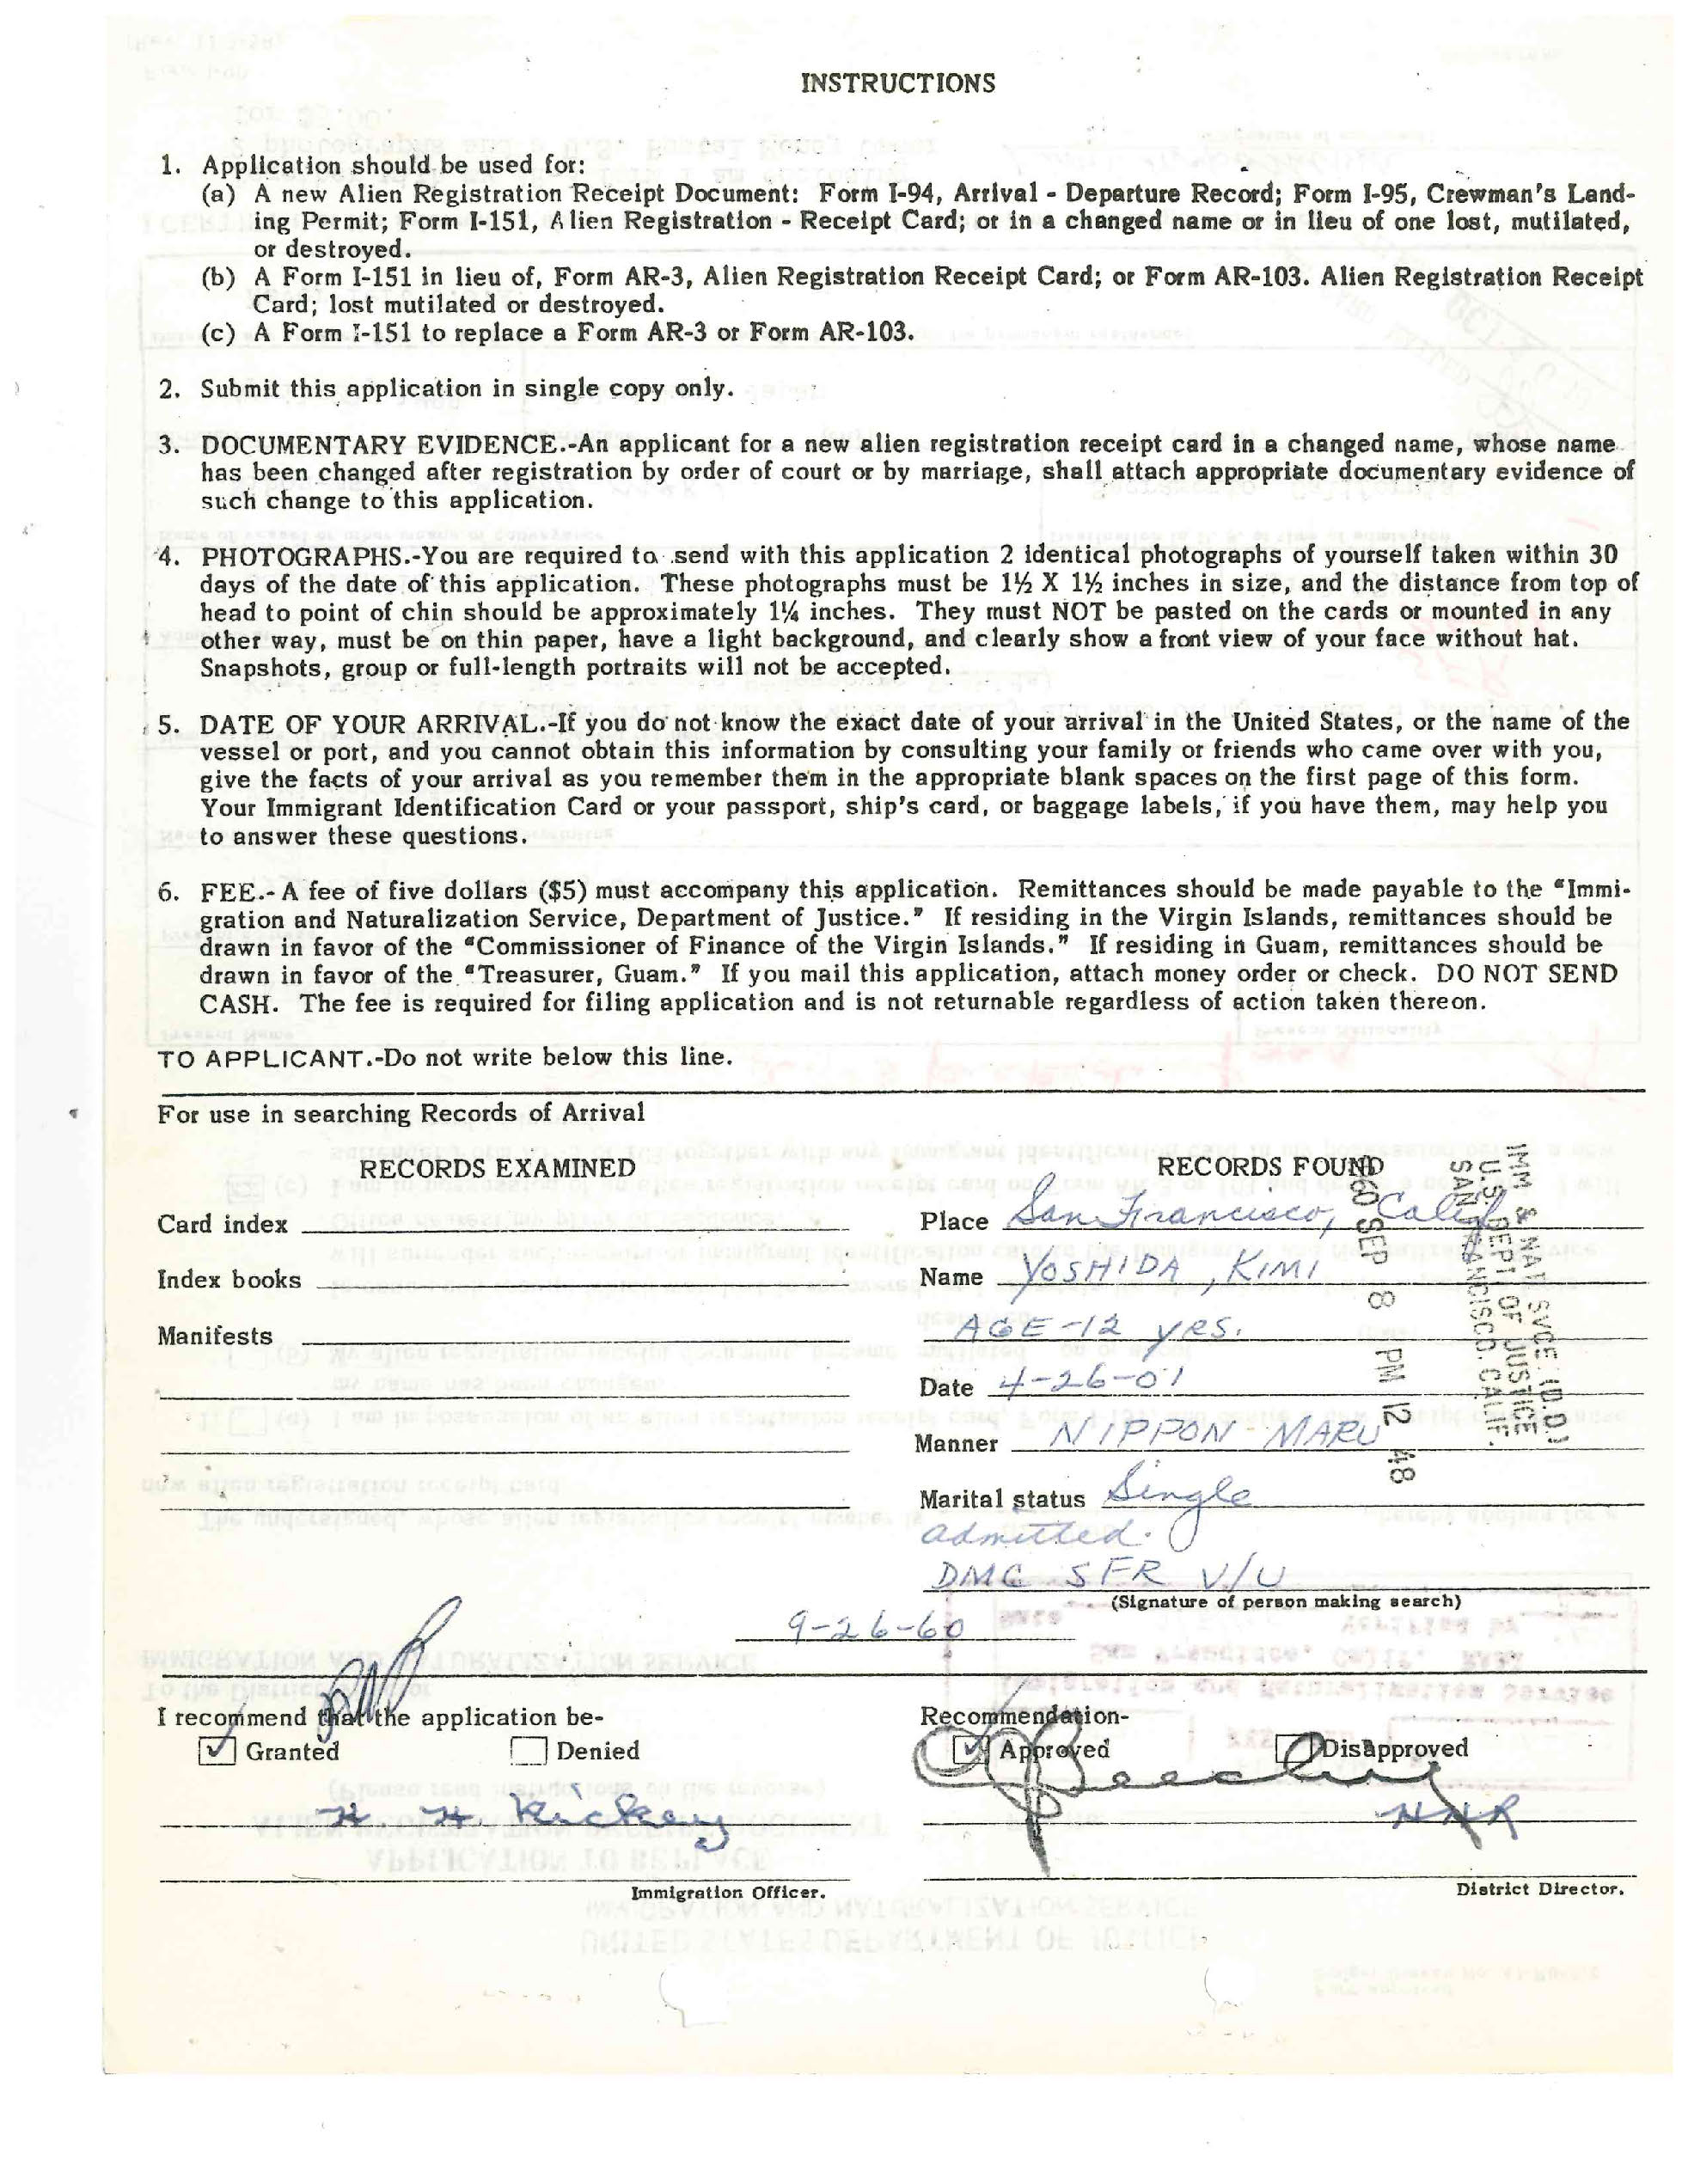 INSTRUCTIONS
1. Application should be used for:
(a) A new Alien Registration Receipt Document: Form I-94, Arrival - Departure Record; Form I-95, Crewman's Land-
ing Permit; Form I-151, Alien Registration - Receipt Card; or in a changed name or in lieu of one lost, mutilated,
or destroyed.
(b) A Form I-151 in lieu of, Form AR-3, Alien Registration Receipt Card; or Form AR-103. Alien Registration Receipt
Card; lost mutilated or destroyed.
(c) A Form I-151 to replace a Form AR-3 or Form AR-103.
2. Submit this application in single copy only.
3. DOCUMENTARY EVIDENCE.-An applicant for a new alien registration receipt card in a changed name, whose name
has been changed after registration by order of court or by marriage, shall attach appropriate documentary evidence of
such change to this application.
4. PHOTOGRAPHS.-You are required to send with this application 2 identical photographs of yourself taken within 30
days of the date of this application. These photographs must be 1½ X 1½ inches in size, and the distance from top of
head to point of chin should be approximately 1¼ inches. They must NOT be pasted on the cards or mounted in any
other way, must be on thin paper, have a light background, and clearly show a front view of your face without hat.
Snapshots, group or full-length portraits will not be accepted.
5. DATE OF YOUR ARRIVAL.-If you do not know the exact date of your arrival in the United States, or the name of the
vessel or port, and you cannot obtain this information by consulting your family or friends who came over with you,
give the facts of your arrival as you remember them in the appropriate blank spaces on the first page of this form.
Your Immigrant Identification Card or your passport, ship's card, or baggage labels, if you have them, may help you
to answer these questions.
6. FEE.- A fee of five dollars ($5) must accompany this application. Remittances should be made payable to the "Immi-
gration and Naturalization Service, Department of Justice." If residing in the Virgin Islands, remittances should be
drawn in favor of the "Commissioner of Finance of the Virgin Islands." If residing in Guam, remittances should be
drawn in favor of the "Treasurer, Guam." If you mail this application, attach money order or check. DO NOT SEND
CASH. The fee is required for filing application and is not returnable regardless of action taken thereon.
TO APPLICANT.-Do not write below this line.
For use in searching Records of Arrival
RECORDS EXAMINED
Card index
Index books
Manifests
RECORDS FOUND
Place San Francisco, Calif
Name YOSHIDA, KIMI
AGE-12 yrs.
Date 4-26-01
Manner NIPPON MARU
Marital status Single
admitted.
DMC SFR V/U
(Signature of person making search)
'60 SEP 8 PM 12 48
IMM & NAT SVCE (D.O.)
U S DEPT OF JUSTICE
SAN FRANCISCO. CALIF.
9-26-60
I recommend that the application be-
Granted
Denied
H H Kickey
Immigration Officer.
Recommendation-
Approved
Disapproved
HHR
District Director.